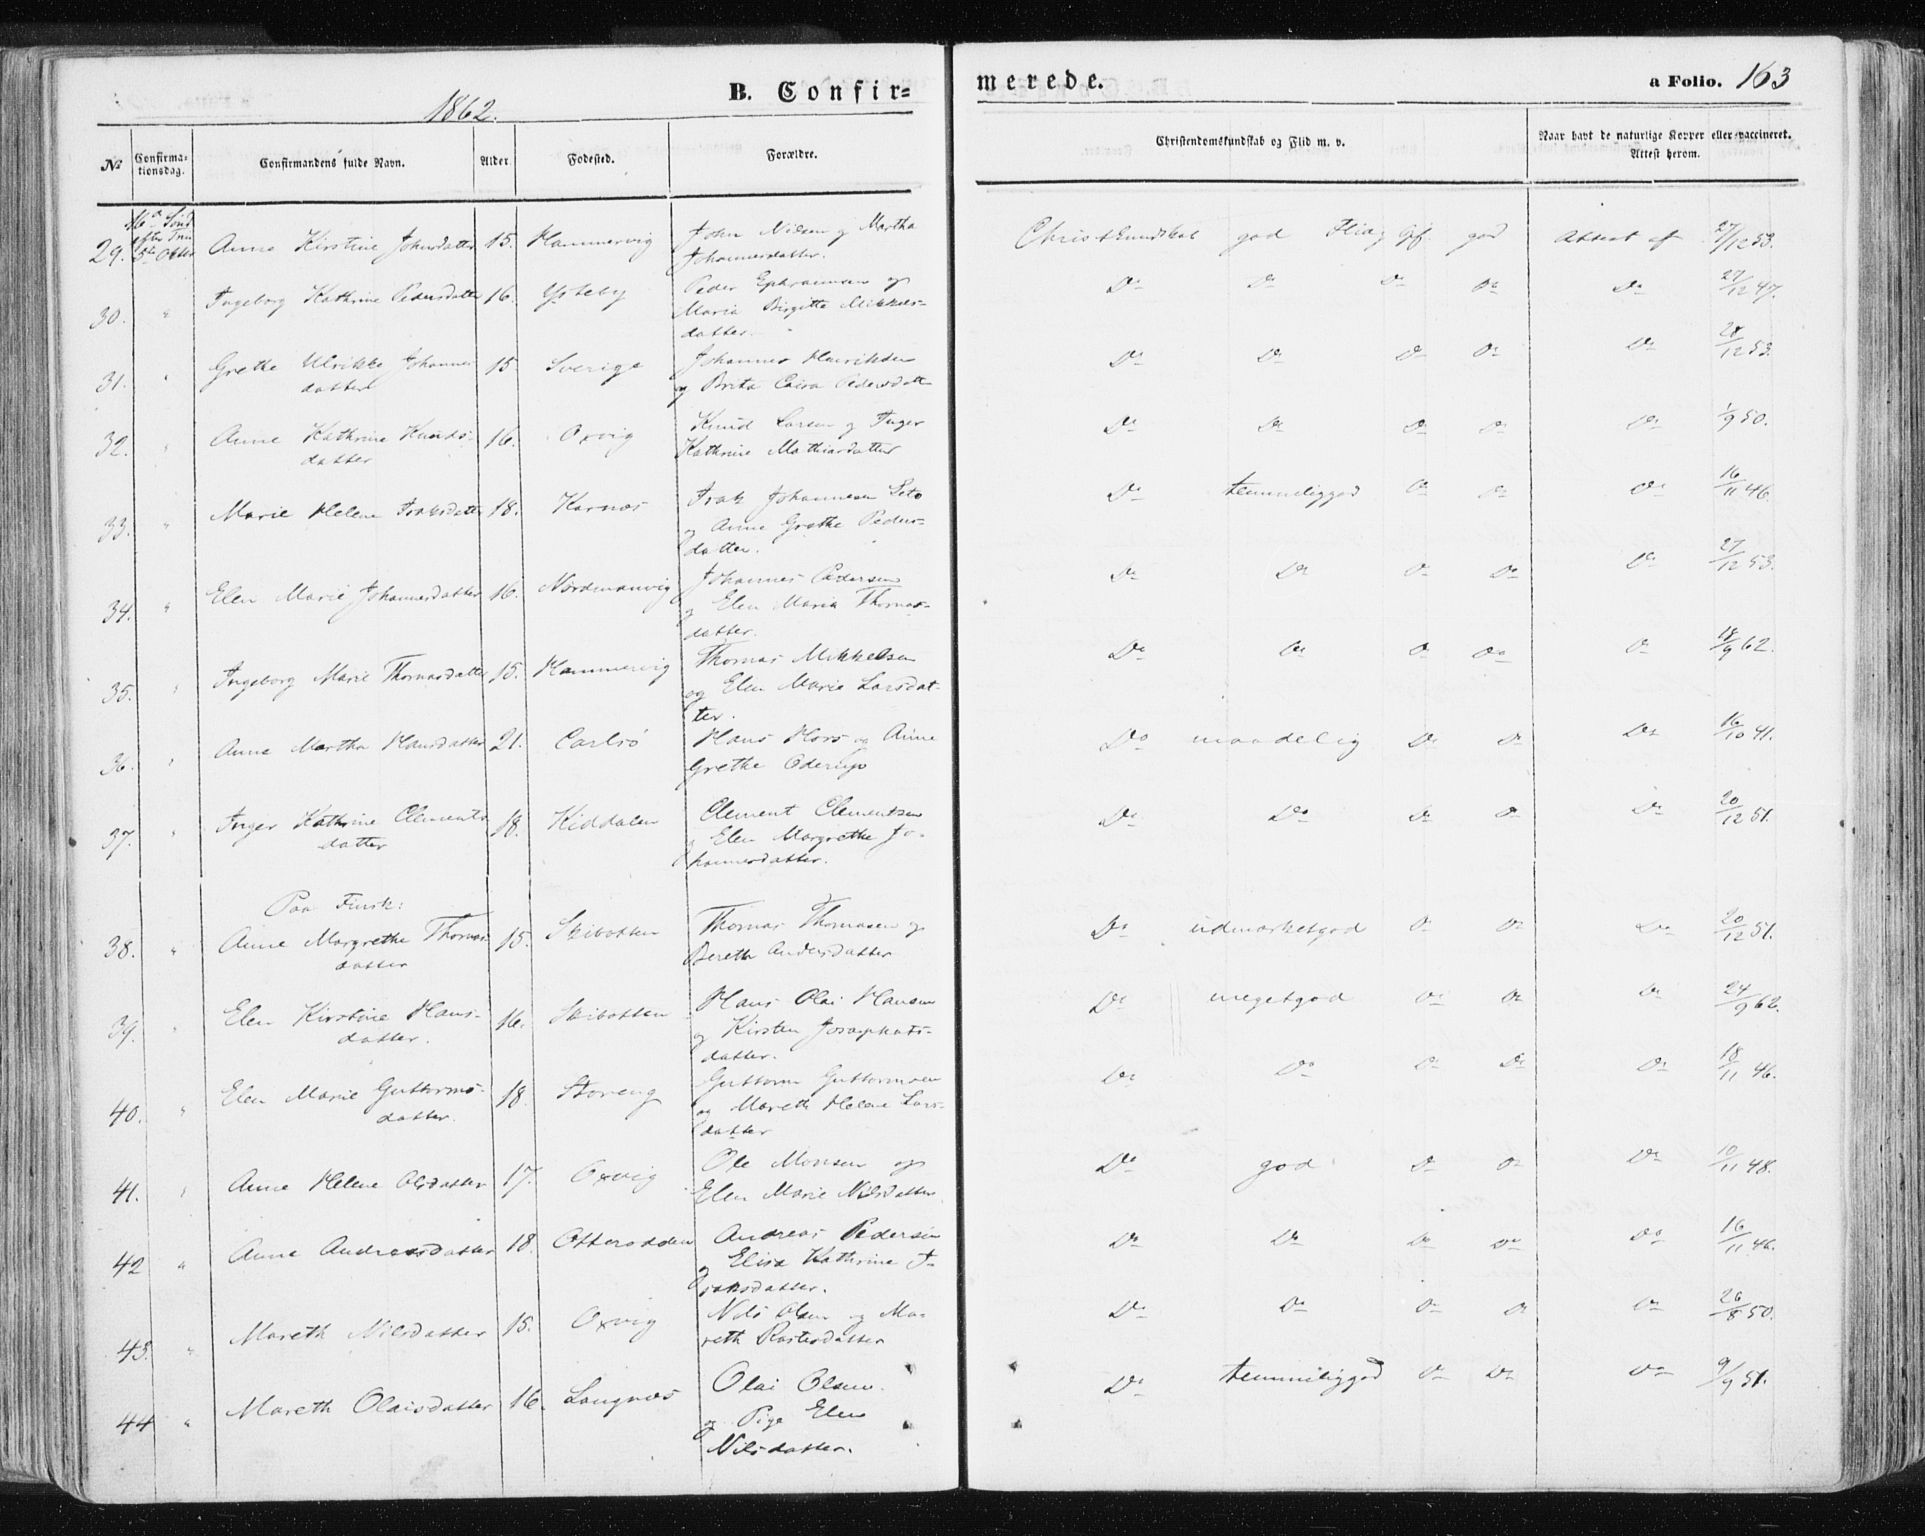 1862.
B. Confir=
merede.
a Folio. 163
No
Confirma-
tionsdag.
Confirmandens fulde Navn.
Alder.
Fodested.
Forældre.
Christendomskundskab og Flid m. v.
Naar havt de naturlige Kopper eller vaccineret.
Attest herom.
16d Sönd
efter Trin
5te Octbr
29. Anne Kirstine Johnsdatter 15. Hammervig John Nilsen og Martha
Johannesdatter.
god Flid god Attest af 27/12 53.
30. " Ingeborg Kathrine Pedersdatter 16. Ysteby Peder Ephraimsen og
Maria Birgitte Mikkels-
datter.
Do Do Do Do Do 27/12 47.
31. " Grethe Ulrikke Johannes 15 Sverige Johannes Henriksen
datter og Brita Caisa Pedersdatter
Do Do Do Do Do 28/12 53.
32. " Anne Kathrine Knuds- 16. Oxvig Knud Larsen og Inger
datter Kathrine Mathiasdatter
Do Do Do Do Do 1/9 50.
33. " Marie Helene Isaksdatter 18. Karnæs Isak Johannesen
og Anne Grethe Peders-
datter.
Do temmeliggod Do Do Do 16/11 46.
34. " Elen Marie Johannesdatter 16. Nordmanvig Johannes Pedersen
og Elen Maria Thomas-
datter.
Do Do Do Do Do 27/12 53.
35. " Ingeborg Marie Thomasdatter 15. Hammervig Thomas Mikkelsen
og Elen Marie Larsdat-
ter.
Do Do Do Do Do 18/9 62.
36. " Anne Martha Hansdatter 21. Carlsö Hans Hors og Anne
Grethe
Do maadelig Do Do Do 16/10 41.
37. " Inger Kathrine Clements 18. Kiddalen Clement Clementsen
datter og Elen Margrethe Jo-
hannesdatter.
Do Do Do Do Do 20/12 51.
Paa Finsk:
38. " Anne Margrethe Thomas 15. Skibotten Thomas Thomasen og
datter Bereth Andersdatter
Do udmærketgod Do Do Do 20/12 51.
39. " Elen Kirstine Hans- 16. Skibotten Hans Olai Hansen
datter. og Kirsten Josaphats-
datter.
Do megetgod Do Do Do 24/9 62.
40. " Elen Marie Guttorms- 18. Storeng Guttorm Guttormsen
datter. og Mareth Helene Lars-
datter
Do Do Do Do Do 18/11 46.
41. " Anne Helene Olsdatter 17. Oxvig Ole Monsen og
Elen Marie Nilsdatter.
Do god Do Do Do 10/11 48.
42 " Anne Andreasdatter 18. Otterodden Andreas Pedersen
og Elisa Kathrine I-
saksdatter.
Do Do Do Do Do 16/11 46.
43. " Mareth Nilsdatter 15. Oxvig Nils Olsen og Ma-
reth
Do Do Do Do Do 26/8 50.
44 " Mareth Olaisdatter 16. Langnæs Olai Olsen
og Pige Elen
Nilsdatter.
Do temmeliggod Do Do Do 9/9 51.